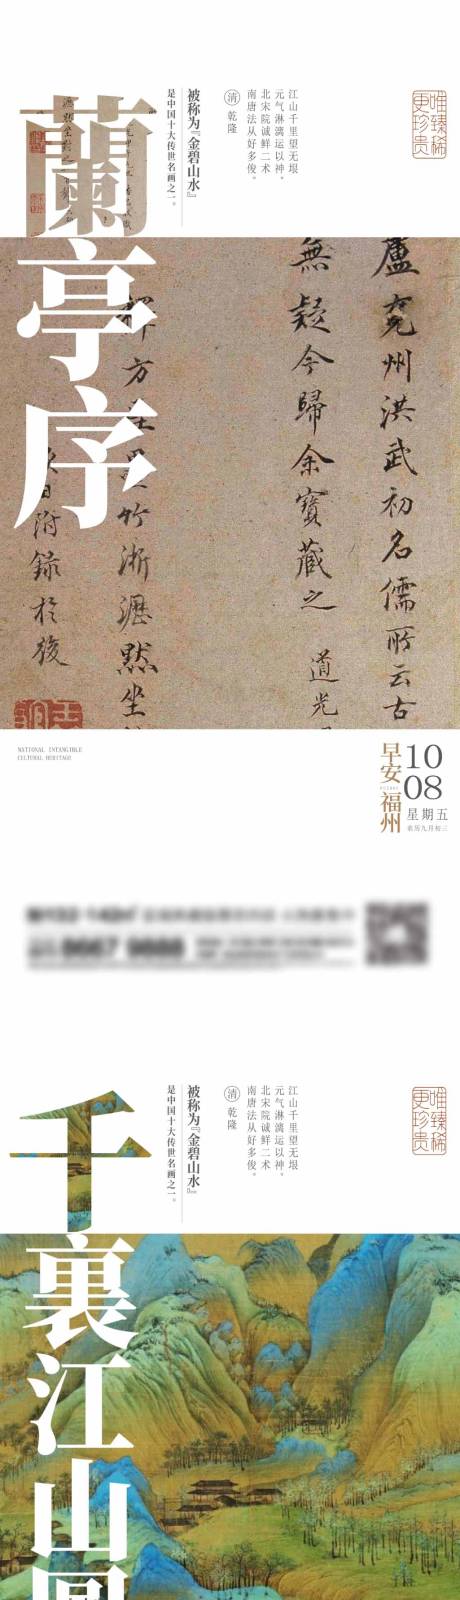 唯臻稀
更珍贵
江山千里望无垠，
元气淋漓运以神。
北宋院诚鲜二术
南唐法从好多俊。
清 乾隆
被称为『金碧山水』
是中国十大传世名画之一。
蘭亭序
盧兖州洪武初名儒所云古
無疑今歸余寶藏之 道光
竹淅瀝黙坐
日附錄於後
NATIONAL INTANGIBLE
CULTURAL HERITAGE
早安 福州
10
08
星期五
农历九月初三
唯臻稀
更珍贵
江山千里望无垠，
元气淋漓运以神。
北宋院诚鲜二术
南唐法从好多俊。
清 乾隆
被称为『金碧山水』
是中国十大传世名画之一。
千裏江山圖